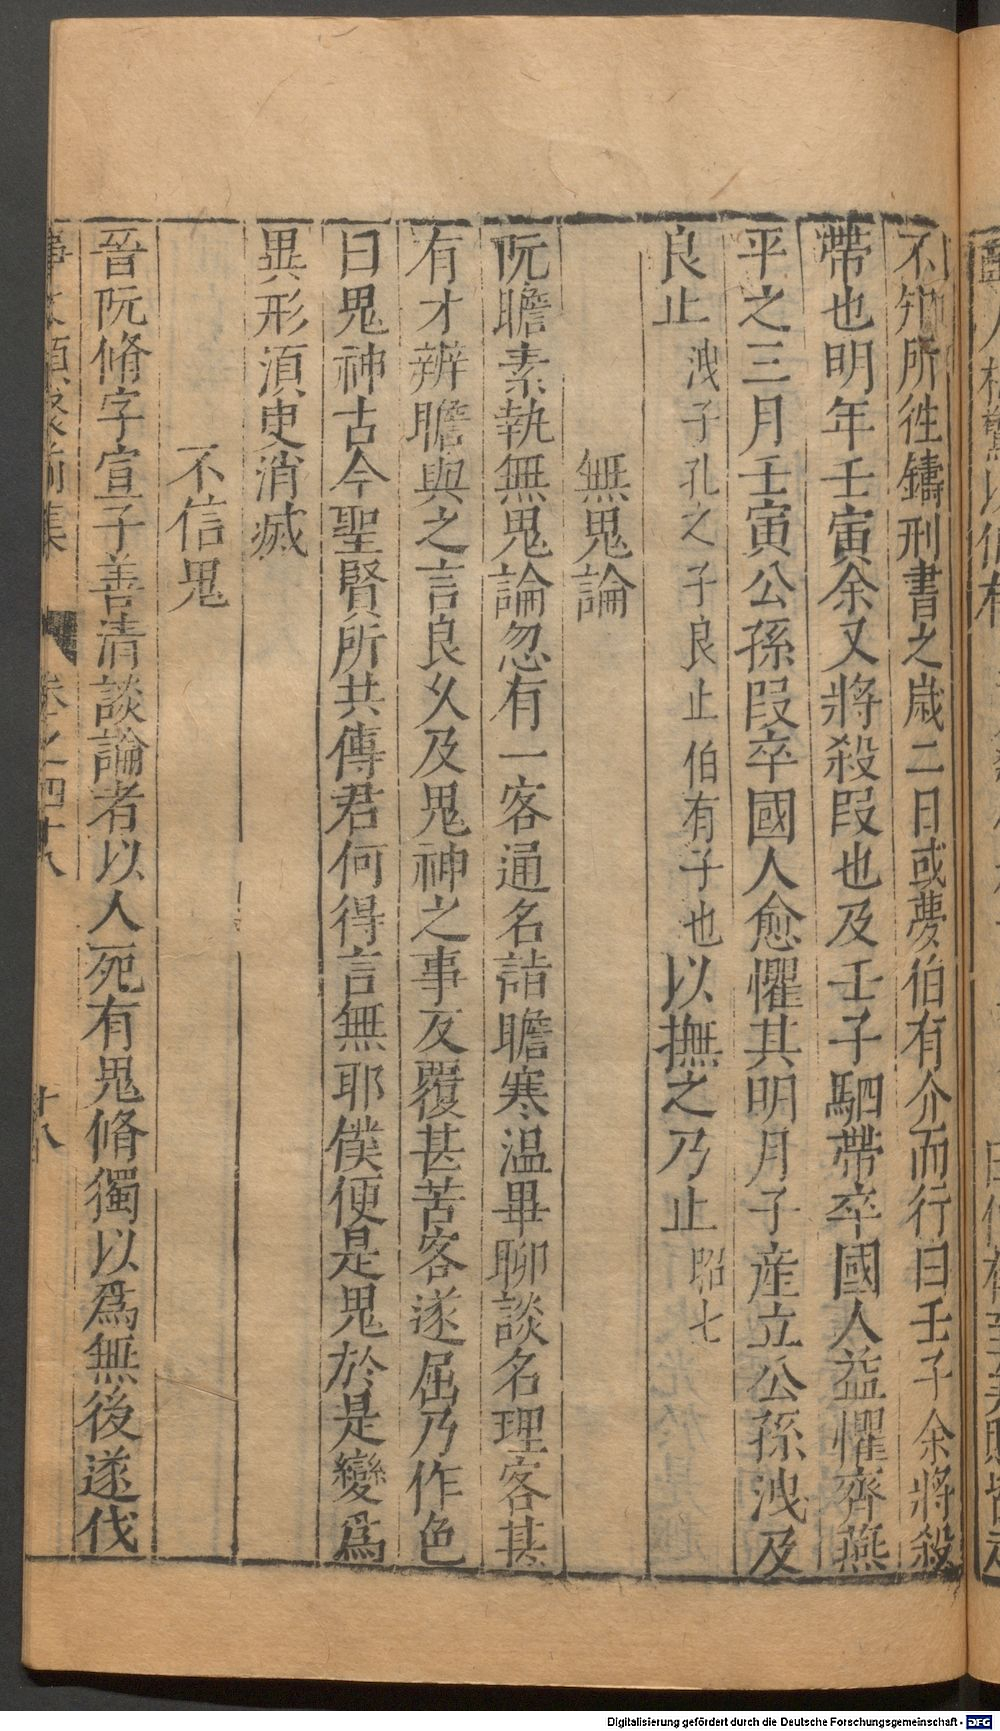 不知所徃鑄刑書之歲二日或夢伯有介而行曰壬子余將殺
帶也明年壬寅余又將殺段也及壬子駟帶卒國人益懼齊燕
平之三月壬寅公孫段卒國人愈懼其明月子產立公孫洩及
良止洩子孔之子良止伯有子也以撫之乃止昭七
無鬼論
阮瞻素執無鬼論忽有一客通名詣瞻寒温畢聊談名理客甚
有才辨瞻與之言良乆及鬼神之事反覆甚苦客遂屈乃作色
曰鬼神古今聖賢所共傳君何得言無耶僕便是鬼於是變爲
異形湏臾消滅
不信鬼
晉阮脩字宣子善清談論者以人死有鬼脩獨以爲無後遂伐
事文類聚前集 卷之四十八 十八
Digitalisierung gefördert durch die Deutsche Forschungsgemeinschaft - DFG